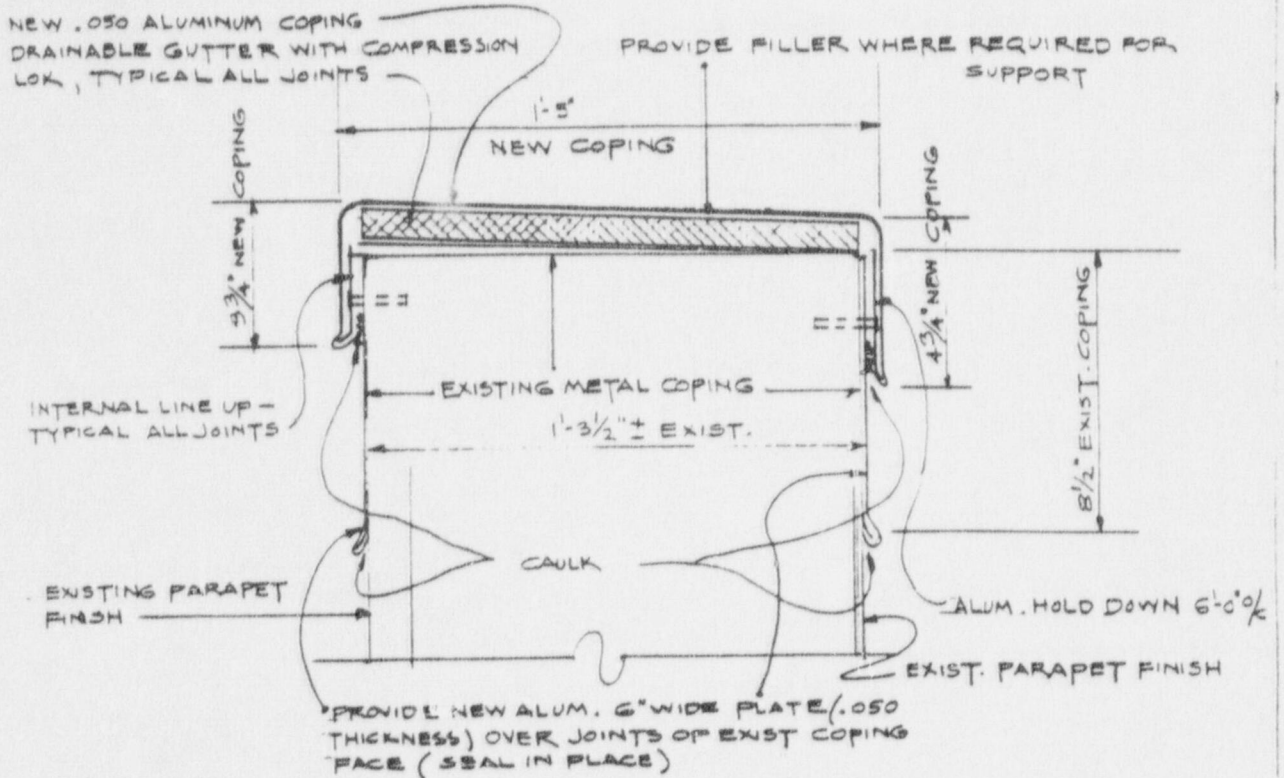 NEW .050 ALUMINUM COPING
DRAINABLE GUTTER WITH COMPRESSION
LOK, TYPICAL ALL JOINTS
PROVIDE FILLER WHERE REQUIRED FOR
SUPPORT
1'-5"
NEW COPING
3 3/4" NEW COPING
4 3/4" NEW COPING
8 1/2" EXIST. COPING
EXISTING METAL COPING
1'-3 1/2" ± EXIST.
INTERNAL LINE UP –
TYPICAL ALL JOINTS
CAULK
EXISTING PARAPET
FINISH
ALUM. HOLD DOWN 6'-0" O/C
EXIST. PARAPET FINISH
PROVIDE NEW ALUM. 6" WIDE PLATE (.050
THICKNESS) OVER JOINTS OF EXIST COPING
FACE (SEAL IN PLACE)